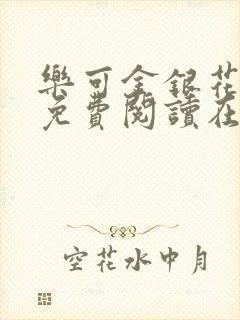 樂可金銀花
免費閱讀在
空花水中月